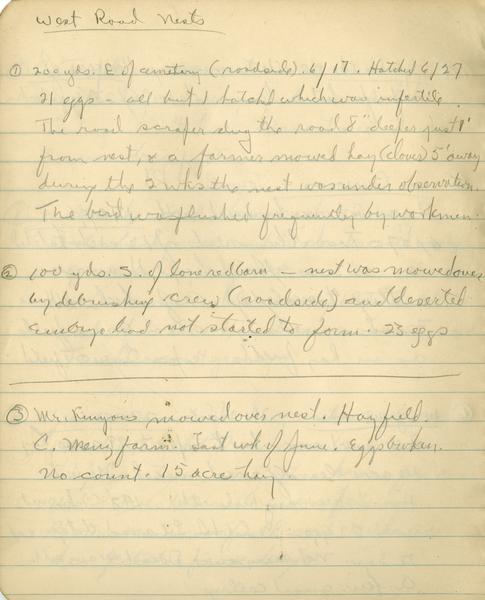 West Road Nests
① 200 yds. E of cemetery (roadside). 6/17. Hatched 6/27
21 eggs - all but 1 hatchd which was infertile.
The road scraper dug the road 8" deeper just 1'
from nest, & a farmer mowed hay (clover) 5' away
during the 2 wks the nest was under observation.
The bird was flushed frequently by workmen.
② 100 yds. S. of lone red barn - nest was mowed over
by debrushing crew (roadside) and deserted.
Embryo had not started to form. 23 eggs
③ Mr. Kenyons mowed over nest. Hayfield
C. farm. Last wk of June. Eggs broken.
No count. 15 acre hay